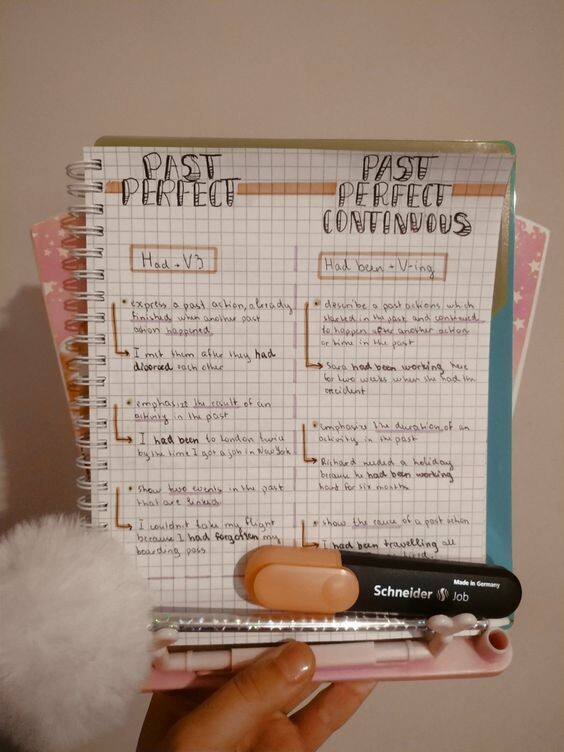 PAST
PERFECT
Had + V3
• express a past action, already
finished when another past
action happened
I met them after they had
divorced each other
• emphasize the result of an
activity in the past
I had been to London twice
by the time I got a job in New York
• show two events in the past
that are linked
I couldn't take my flight
because I had forgotten my
boarding pass
PAST
PERFECT
CONTINUOUS
Had been + V-ing
• describe a past actions which
started in the past and continued
to happen after another action
or time in the past
Sara had been working here
for two weeks when she had the
accident
• emphasize the duration of an
activity in the past
Richard needed a holiday
because he had been working
hard for six months
• show the cause of a past action
I had been travelling all
Made in Germany
Schneider Job